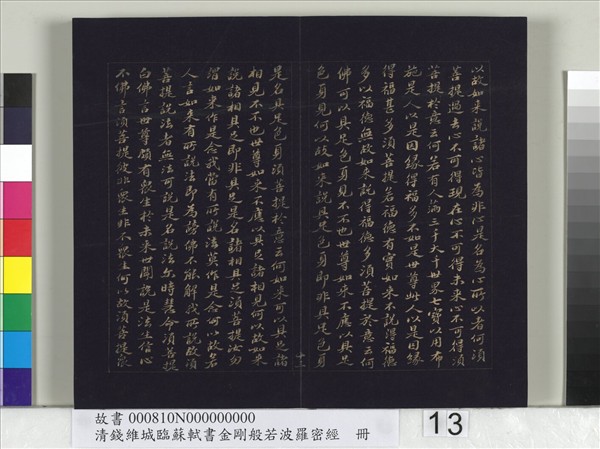 以故如來說諸心皆為非心是名為心所以者何須
菩提過去心不可得現在心不可得未來心不可得須
菩提於意云何若有人滿三千大千世界七寶以用布
施是人以是因緣得福多不如是世尊此人以是因緣
得福甚多須菩提若福德有實如來不說得福德
多以福德無故如來說得福德多須菩提於意云何
佛可以具足色身見不不也世尊如來不應以具足
色身見何以故如來說具足色身即非具足色身
是名具足色身須菩提於意云何如來可以具足諸
相見不不也世尊如來不應以具足諸相見何以故如來
說諸相具足即非具足是名諸相具足須菩提汝勿
謂如來作是念我當有所說法莫作是念何以故若
人言如來有所說法即為謗佛不能解我所說故須
菩提說法者無法可說是名說法尒時慧命須菩提
白佛言世尊頗有眾生於未來世聞說是法生信心
不佛言須菩提彼非眾生非不眾生何以故須菩提眾
故書 000810N000000000
清錢維城臨蘇軾書金剛般若波羅密經 冊
13